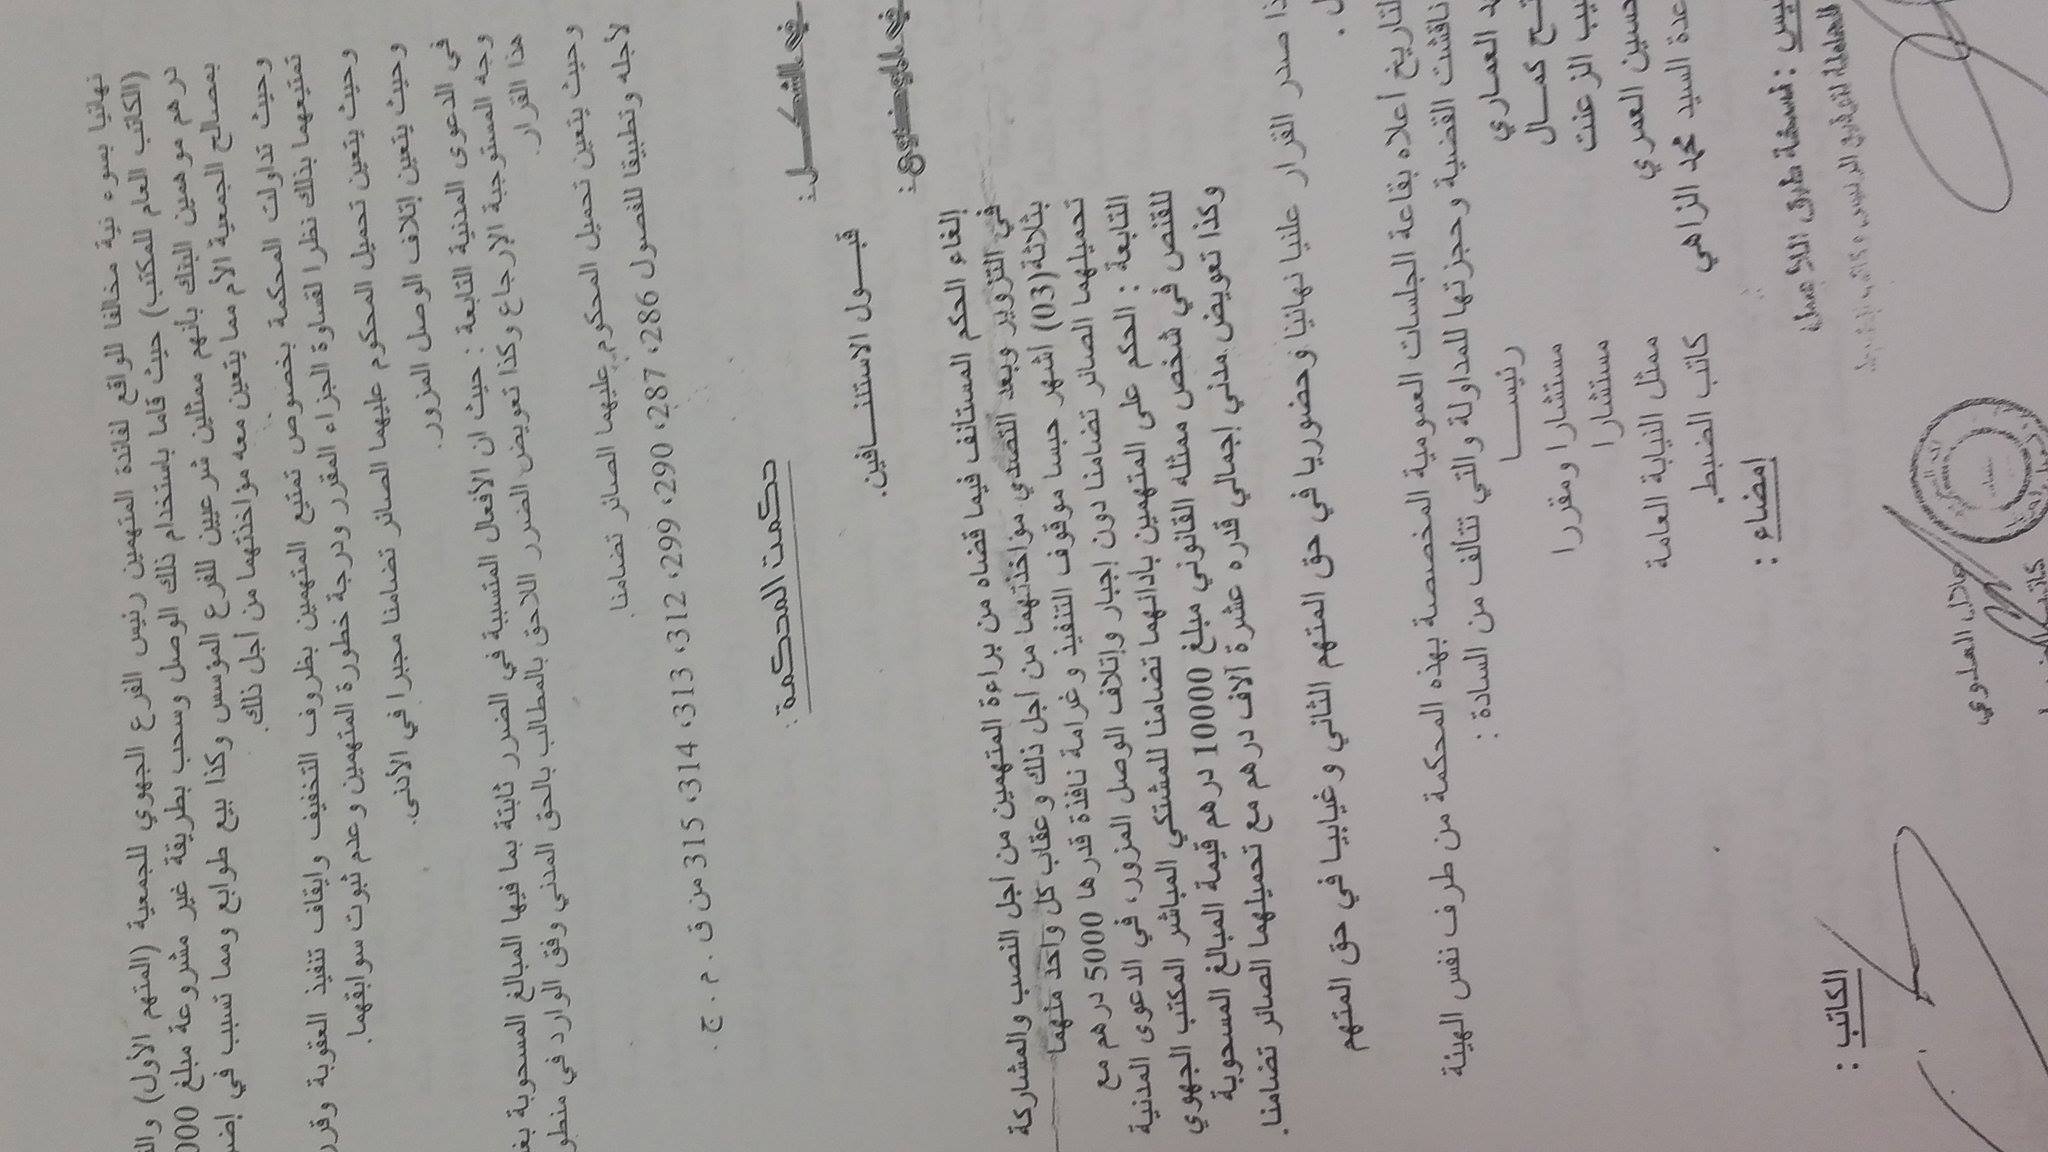 نهائيا بسوء نية مخالفا للواقع لفائدة المتهمين رئيس الفرع الجهوي للجمعية (المتهم الأول)
(الكاتب العام للمكتب) حيث قاما باستخدام ذلك الوصل وسحب بطريقة غير مشروعة مبلغ
درهم موهمين البنك بأنهم ممثلين شرعيين للفرع المؤسس وكذا بيع طوابع ومما تسبب في
بمصالح الجمعية الأم مما يتعين معه مؤاخذتهما من أجل ذلك.
وحيث تداولت المحكمة بخصوص تمتيع المتهمين بظروف التخفيف وإيقاف تنفيذ العقوبة
تمتيعهما بذلك نظرا لقساوة الجزاء المقرر ودرجة خطورة المتهمين وعدم ثبوت سوابقهما.
وحيث يتعين تحميل المحكوم عليهما الصائر تضامنا مجبرا في الأدنى.
وحيث يتعين إتلاف الوصل المزور.
في الدعوى المدنية التابعة : حيث ان الأفعال المتسببة في الضرر ثابتة بما فيها المبالغ المسحوبة
وجه المستوجبة الإرجاع وكذا تعويض الضرر اللاحق بالمطالب بالحق المدني وفق الوارد في
هذا القرار.
وحيث يتعين تحميل المحكوم عليهما الصائر تضامنا.
لأجله وتطبيقا للفصول 286، 287، 290، 299، 312، 313، 314، 315 من ق . م . ج .
حكمت المحكمة :
في الشكل:
قبول الاستئنافين.
في الموضوع:
إلغاء الحكم المستأنف فيما قضاه من براءة المتهمين من أجل النصب والمشاركة
في التزوير وبعد التصدي مؤاخذتهما من أجل ذلك وعقاب كل واحد منهما
بثلاثة (03) اشهر حبسا موقوف التنفيذ وغرامة نافذة قدرها 5000 درهم مع
تحميلهما الصائر تضامنا دون إجبار وإتلاف الوصل المزور، في الدعوى المدنية
التابعة : الحكم على المتهمين بادائهما تضامنا للمشتكي المباشر المكتب الجهوي
للقنص في شخص ممثله القانوني مبلغ 10000 درهم قيمة المبالغ المسحوبة
وكذا تعويض مدني إجمالي قدره عشرة آلاف درهم مع تحميلهما الصائر تضامنا.
صدر القرار علنيا نهائيا وحضوريا في حق المتهم الثاني وغيابيا في حق المتهم
.
التاريخ أعلاه بقاعة الجلسات العمومية المخصصة بهذه المحكمة من طرف نفس الهيئة
ناقشت القضية وحجزتها للمداولة والتي تتألف من السادة :
العماري رئيسا
كمال مستشارا ومقررا
الزعنت مستشارا
العمري ممثل النيابة العامة
السيد محمد الزاهي كاتب الضبط.
إمضاء :
الكاتب :
عادل العلوي